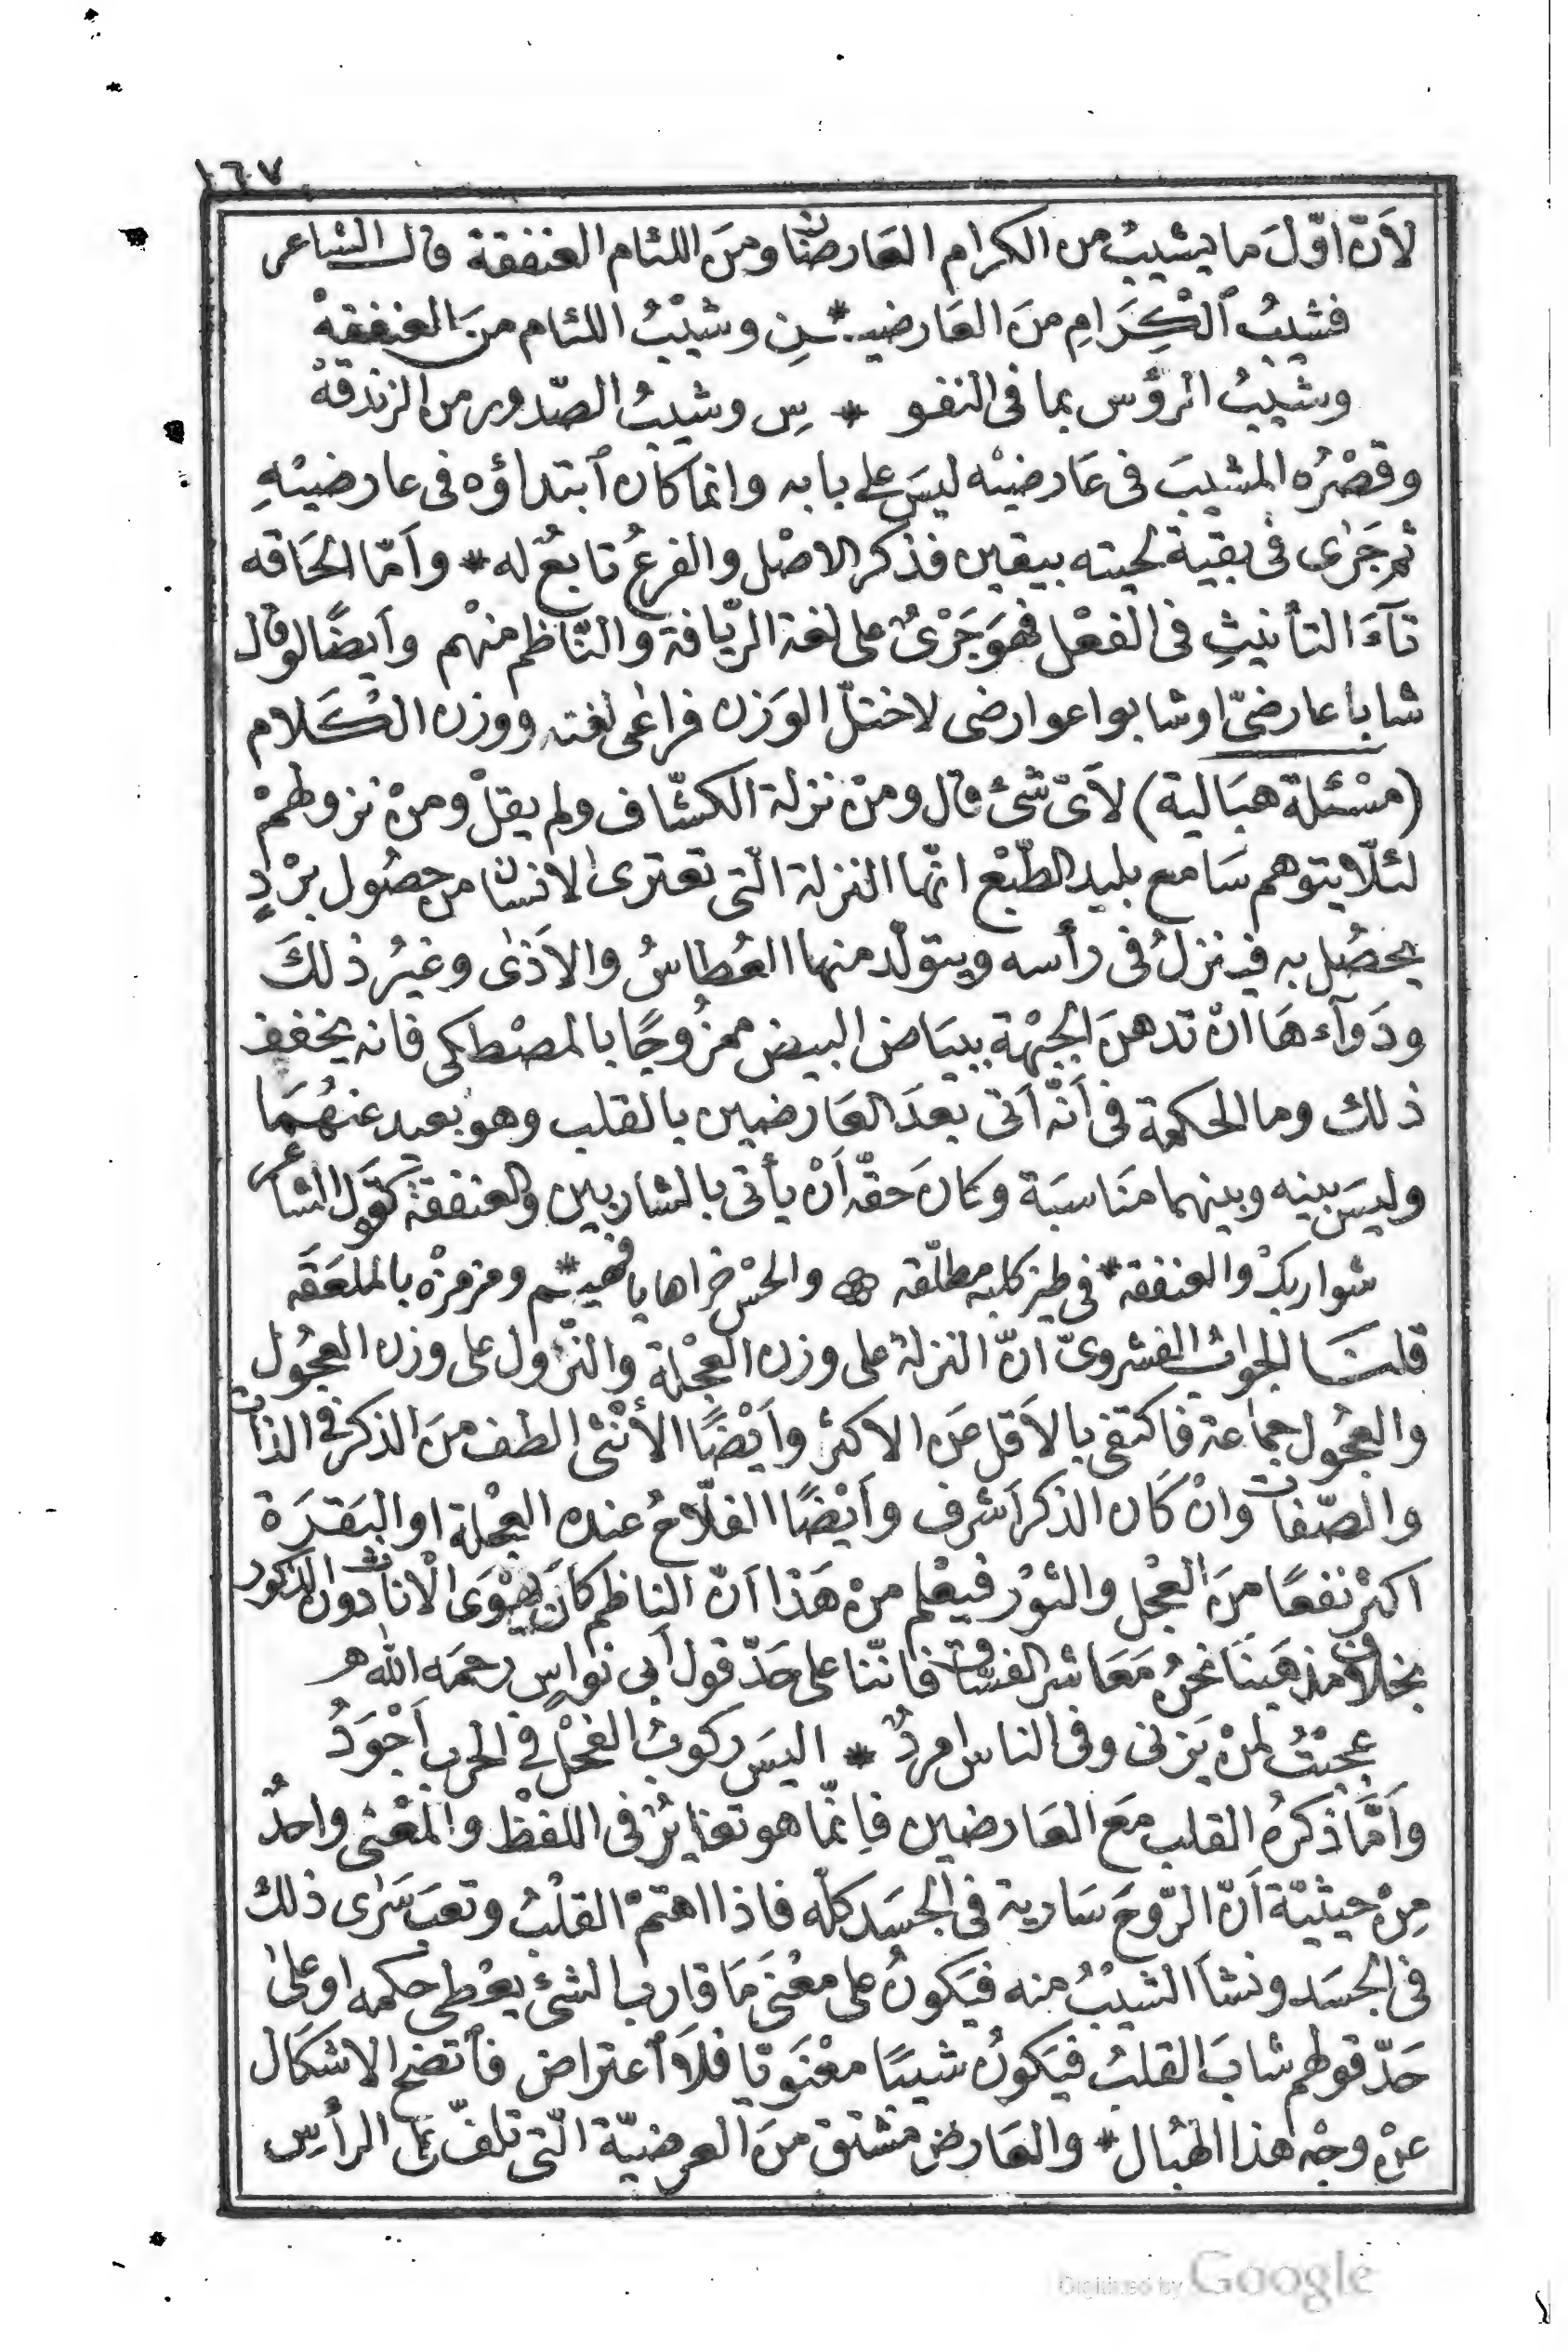 ١٦٧
لأَنّ اوّلَ ما يشيبُ من الكرام العَارضان ومنَ اللئام العنفقة قال الشاعر
فشيبُ ٱلْكِرَامِ منَ العَارضيـ * ـنِ وشيْبُ اللئام منَ العنفقهْ
وشيْبُ الرؤُس بما فى النفو * سِ وشيبُ الصّدور من الزندقهْ
وقصْرُه المشيبَ فى عَارضيْه ليسَ على بابه وانما كان ٱبتداؤه فى عارضيْهِ
ثم جَرٰى فى بقيّة لحيته بيقين فذكر الاصْل والفرعُ تابعٌ له * وأمّا الحَاقه
تآءَ التأنيثِ فى الفعْل فهوَ جَرْىٌ على لغة الريّافة والنّاظم منهْم وأيضًا لو قال
شابا عارضىّ او شابوا عوارضى لاختلّ الوَزن فراعٰى لغته ووزن الكَلام
(مسْئلة هبَالية) لأَىّ شئ قال ومنْ نزلة الكشّاف ولم يقلْ ومنْ نزولهمْ
لئلّا يتوهم سَامع بليد الطّبْع انّها النزلة الّتى تعترى الانسان من حصُول برْدٍ
يحصُل به فينزلُ فى رأسه ويتولّد منها العُطاسُ والاَذٰى وغيرُ ذلكَ
ودَوآءهَا انْ تدهنَ الجبْهة ببيَاض البيض ممزُوجًا بالمصْطكى فانه يخفف
ذلك وما الحكمة فى أنّه اَتى بعدَ العَارضين بالقلب وهو بعيد عنهُمَا
وليسَ بينه وبينهما منَاسبَة وكانَ حقّه أنْ يأتى بالشاربين والعنفقة كقوْل الشاعر
شواربكْ والعنفقه * فى طيز كلبه مطلّقه والحسْ خراها يا فهيـ * ـم ومزمزْه بالملعَقَه
قلنَا الجوابُ الفشروىّ انّ النزلة على وزن العجْلة والنّزول على وزن العجُول
والعجُول جماعة فاكتفى بالاَقل عَن الاكثرْ وأيْضًا الأُنْثى الطف منَ الذكر فى الذات
والصّفات وانْ كَان الذكر اَشرف وأيْضًا الفلّاحُ عنده العجْلة او البَقَرَة
اكثرْ نفعًا منَ العجْل والثوْر فيعْلم منْ هَذا اَنّ الناظم كانَ يهْوَى الْاناث دون الذكور
بخلاف مذهَبنَا نحنُ مَعَاشر الفسّاق فانّنا على حَدّ قول أبى نواسٍ رحمَه الله هـ
عجبْتُ لمنْ يَزنى وفى الناس امردٌ * اليسَ ركوبُ الفحْل فى الحرب أجْوَدُ
وأمَّا ذكرُه القلب معَ العَارضين فإنّما هو تغايرٌ فى اللفظْ والمْعْنى واحدٌ
مِنْ حيثيّة أنّ الرّوحَ سَارية فى الجسَد كلّه فاذا اهتمّ القلْبُ وتعبَ سَرٰى ذلكَ
فى الجسَد ونشأ الشيْبُ منه فيَكونُ على معْنَى مَا قارب الشئ يعْطى حكمه او على
حَدّ قولهم شابَ القلبُ فيَكونُ شيبًا معْنَويّا فلاَ ٱعتراض فٱتضح الاشكَال
عنْ وجْه هذا الهبَال * والعَارض مشتق منَ العرضيّة الّتى تلفّ على الرأسِ
Digitized by Google